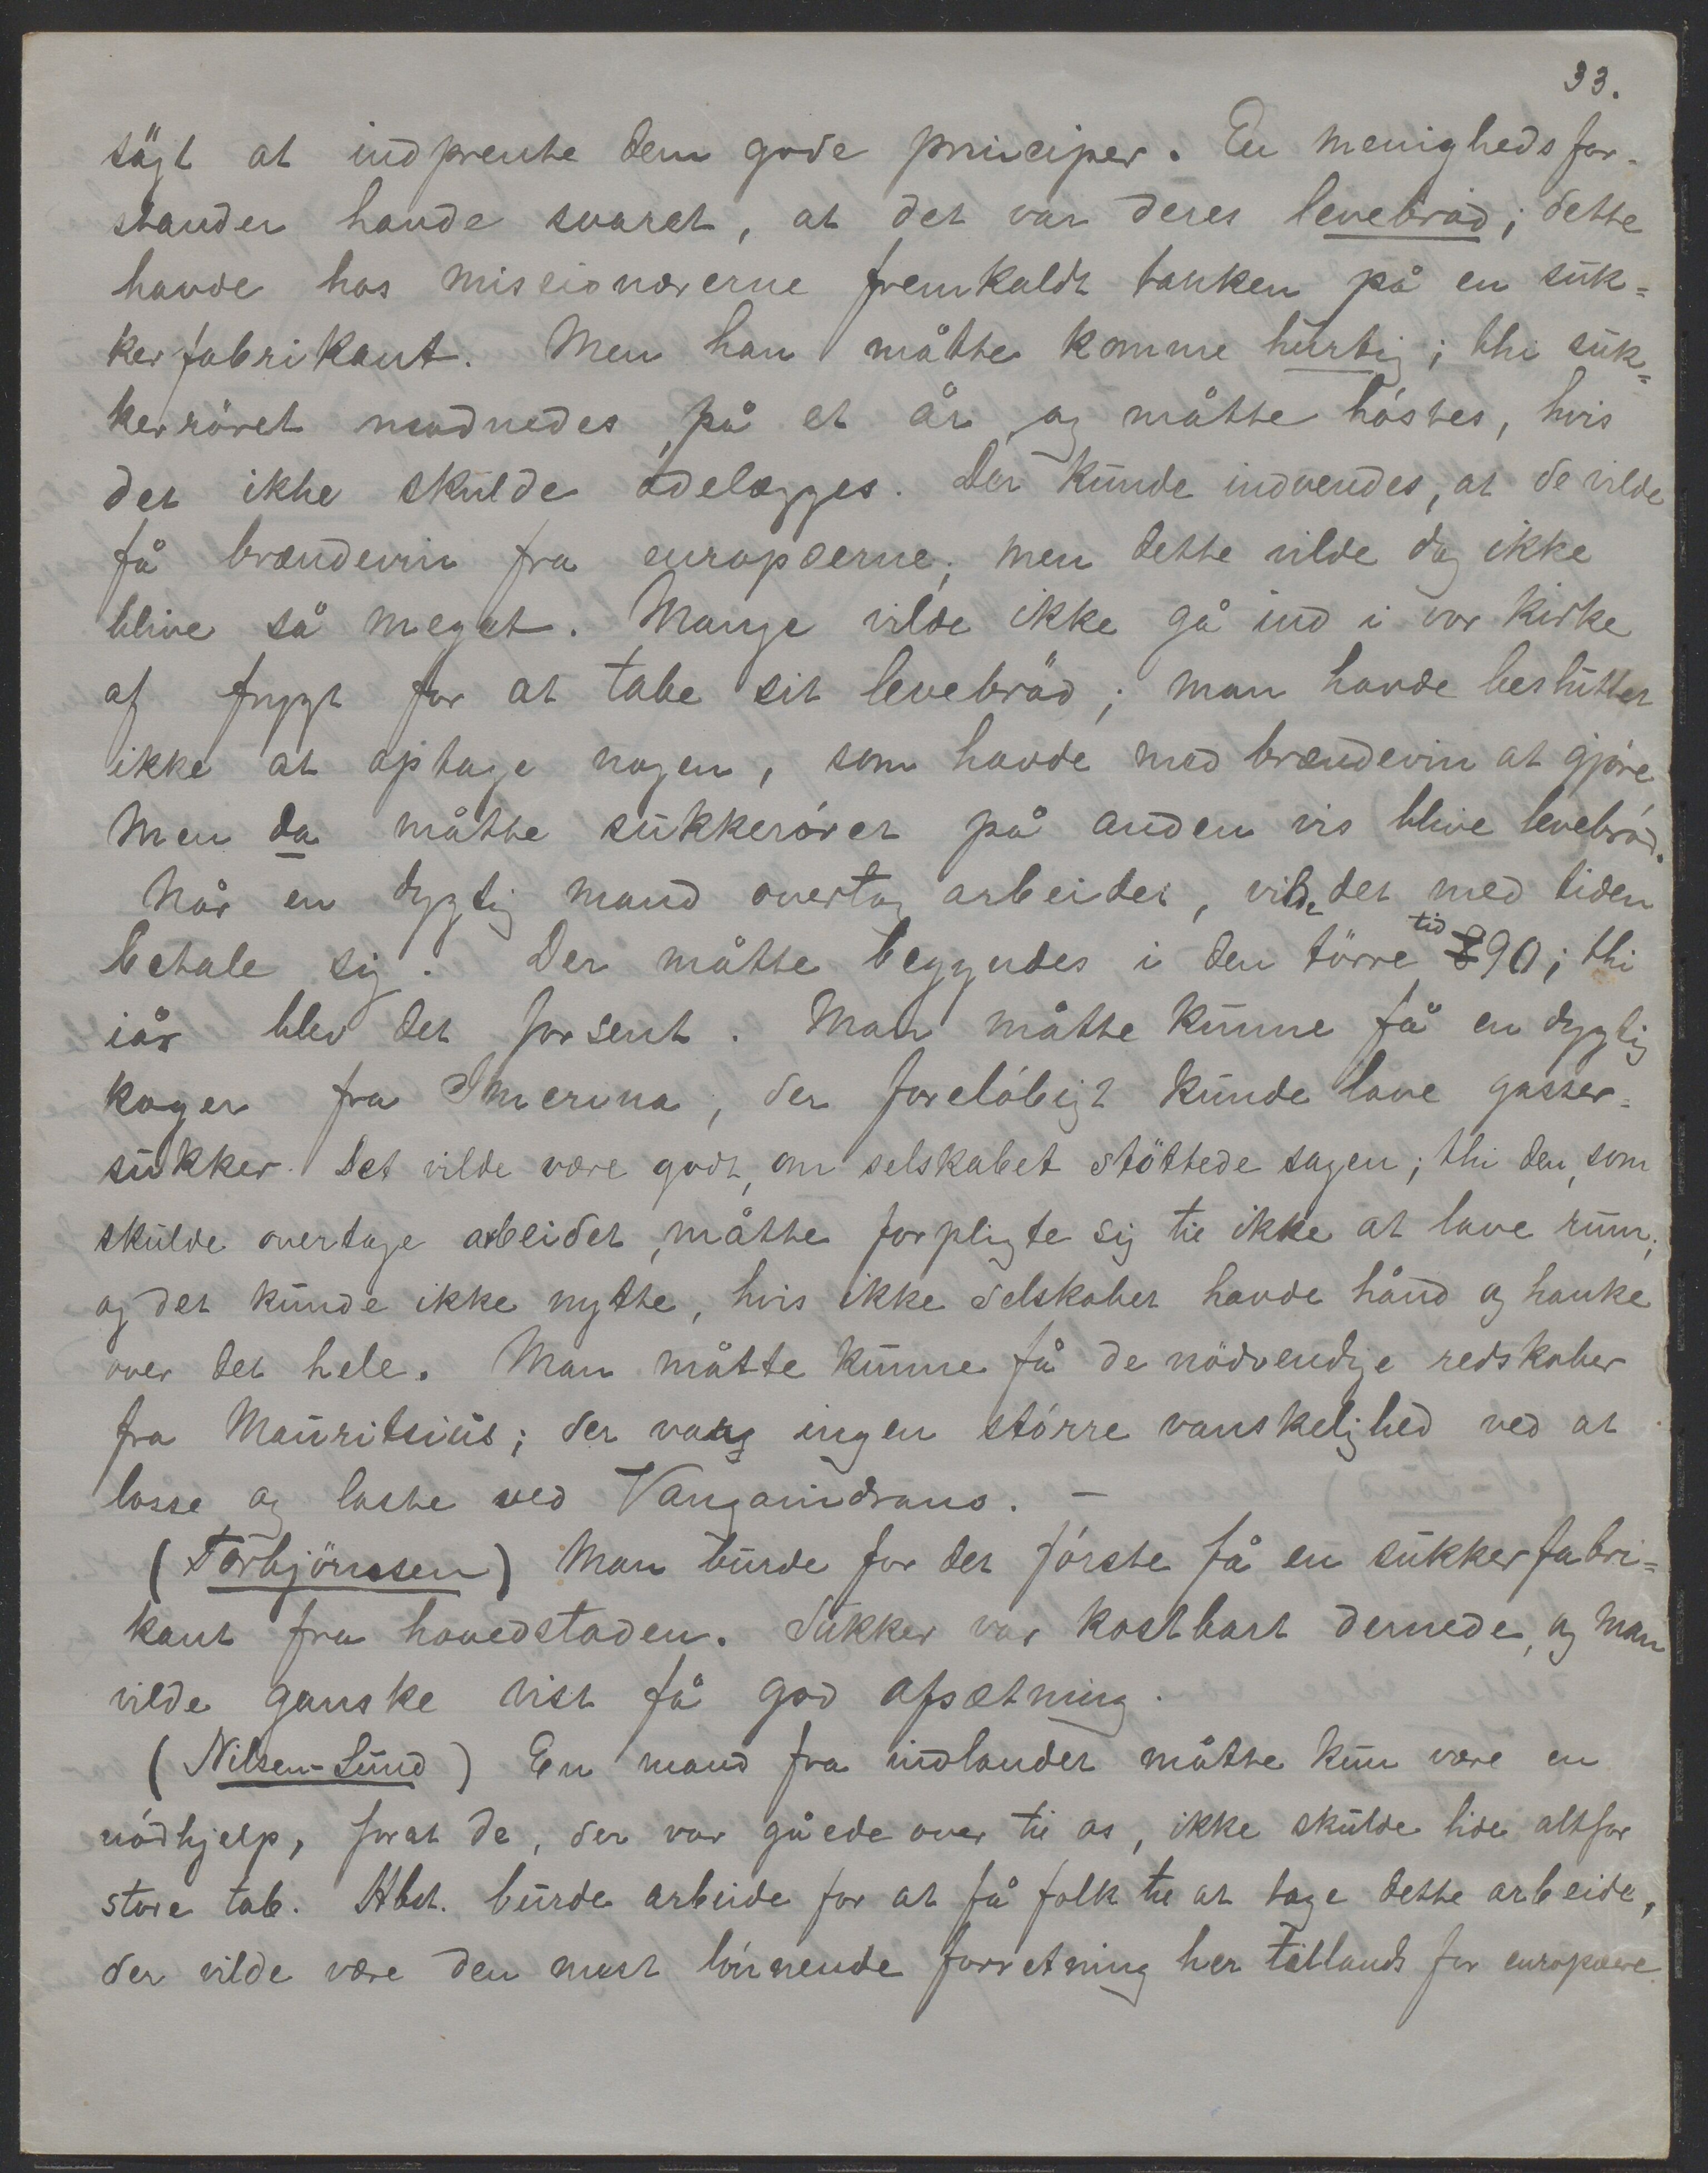 33.
sögt at indprente dem gode principer. En menighedsfor-
stander havde svaret, at det var deres levebröd; dette
havde hos missionærerne fremkaldt tanken på en suk=
kerfabrikant. Men han måtte komme hurtig; thi suk=
kerröret modnedes på et år og måtte höstes, hvis
det ikke skulde ödelægges. Der kunde indvendes, at de vilde
få brændevin fra europæerne; men dette vilde dog ikke
blive så meget. Mange vilde ikke gå ind i vor kirke
af frygt for at tabe sit levebröd; man havde besluttet
ikke at optage nogen, som havde med brændevin at gjöre
Men da måtte sukkeröret på anden vis blive levebröd.
Når en dygtig mand overtog arbeidet, vilde det med tiden
betale sig. Der måtte begyndes i den törre tid 90; thi
iår blev det for sent. Man måtte kunne få en dygtig
koger fra Imerina, der foreløbigt kunde lave gasser=
sukker. Det vilde være godt, om selskabet stöttede sagen; thi den, som
skulde overtage arbeidet, måtte forpligte sig til ikke at lave rum;
og det kunde ikke nytte, hvis ikke selskabet havde hånd og hanke
over det hele. Man måtte kunne få de nödvendige redskaber
fra Mauritsius; der var ingen större vanskelighed ved at
losse og laste ved Vangaindrano. –
(Torbjörnsen) Man burde for det förste få en sukkerfabri=
kant fra hovedstaden. Sukker var kostbart dernede, og man
vilde ganske vist få god afsætning.
(Nilsen-Lund) En mand fra indlandet måtte kun være en
nödhjelp, forat de, der var gåede over til os, ikke skulde lide altfor
store tab. Hbst. burde arbeide for at få folk til at tage dette arbeide,
der vilde være den mest lönnende forretning her tillands for europæere.